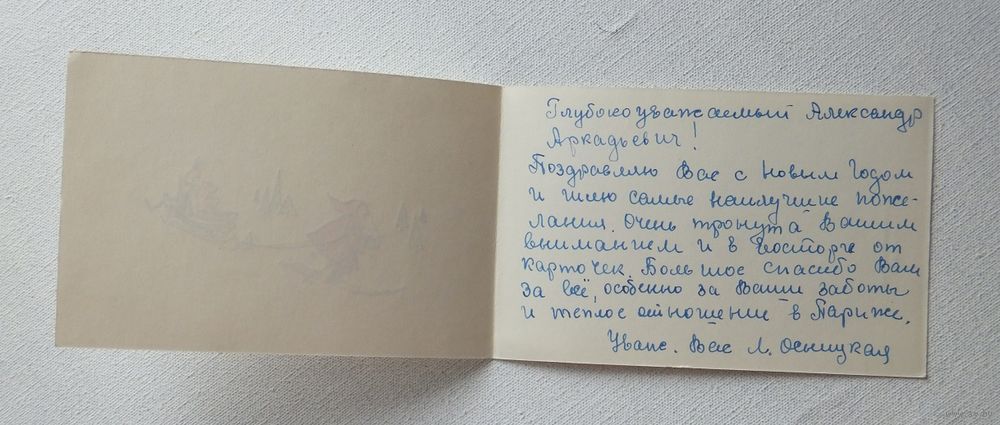 Глубокоуважаемый Александр
Аркадьевич!
Поздравляю Вас с Новым Годом
и шлю самые наилучшие поже-
лания. Очень тронута Вашим
вниманием и в восторге от
карточек. Большое спасибо Вам
за всё, особенно за Ваши заботы
и теплое отношение в Париже.
Уваж. Вас Л. Осницкая